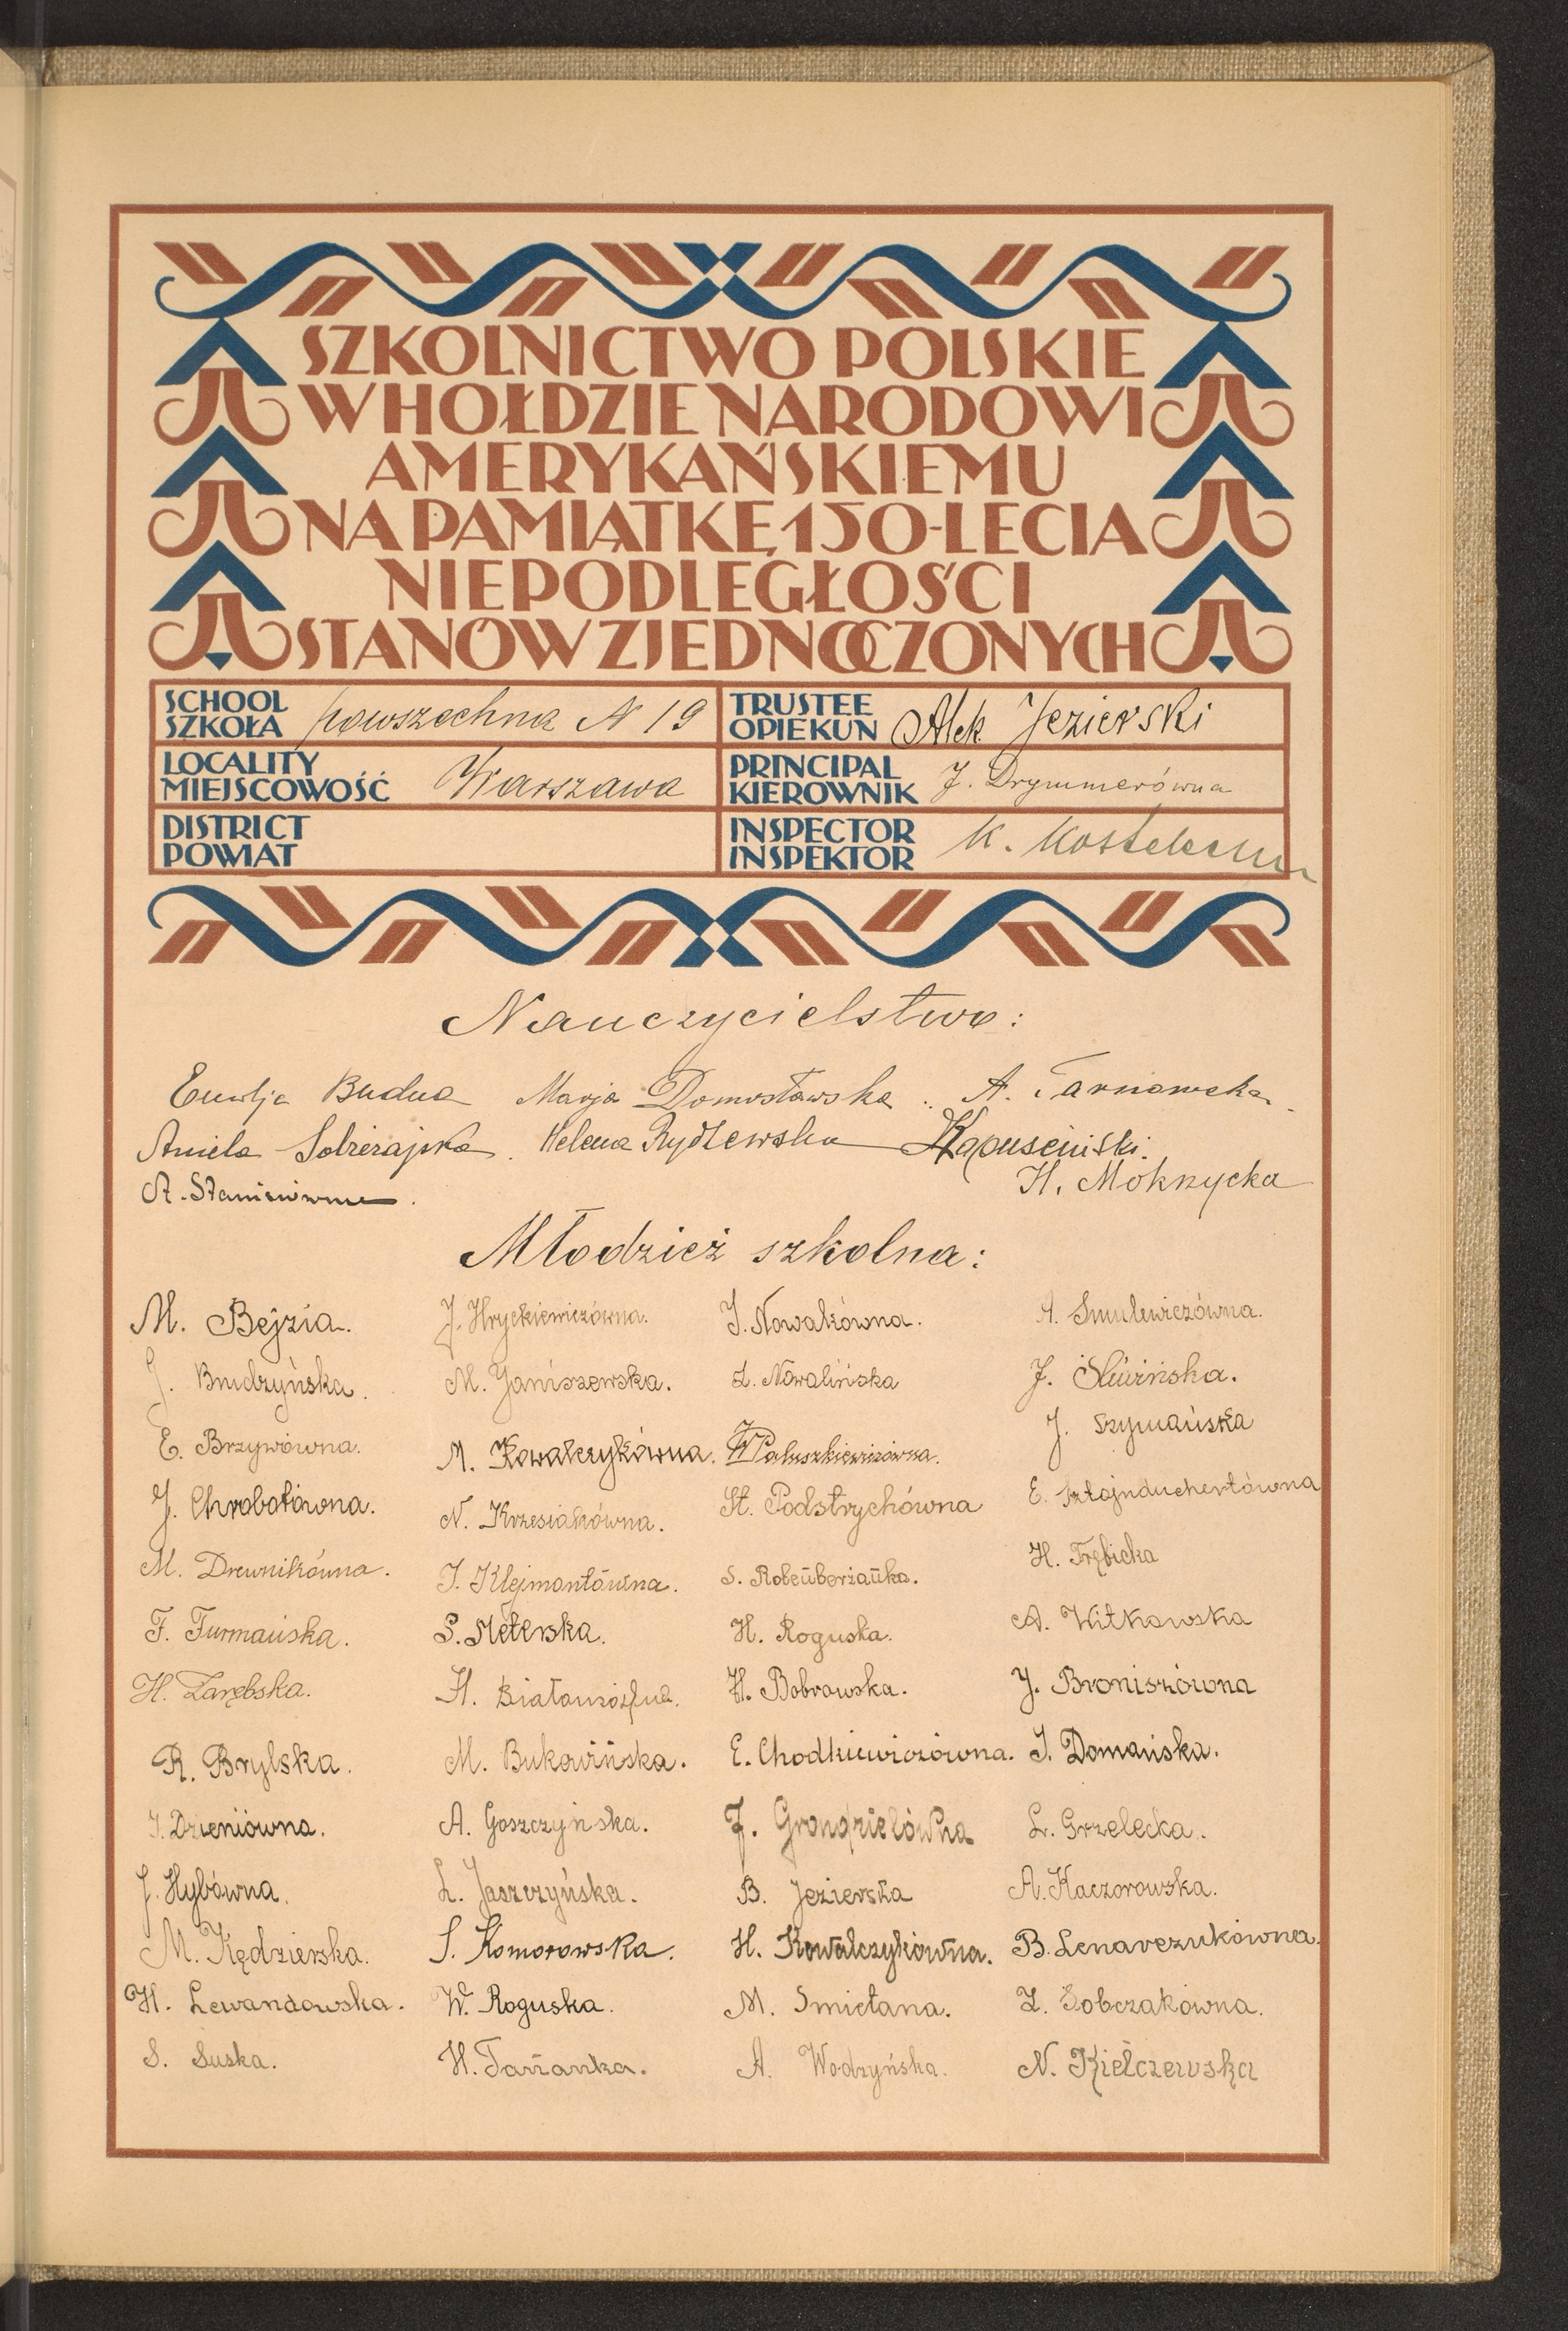 SZKOLNICTWO POLSKIE
W HOŁDZIE NARODOWI
AMERYKAŃSKIEMU
NA PAMIĄTKĘ 150-LECIA
NIEPODLEGŁOŚCI
STANÓW ZJEDNOCZONYCH
SCHOOL
SZKOŁA powszechna N 19
TRUSTEE
OPIEKUN Alek. Jezierski
LOCALITY
MIEJSCOWOŚĆ Warszawa
PRINCIPAL
KIEROWNIK J. Drymmerówna
DISTRICT
POWIAT
INSPECTOR
INSPEKTOR K.
Nauczycielstwo:
Marja Domosławska. A. Tarnowska.
Aniela Helena Rydzewska Kapuściński.
H. Mokrzycka
A.
Młodzież szkolna:
M. Bejzia. J. Hryckiewiczówna. J. Nowakówna. A. Smulewiczówna.
J. Brudzyńska. M. Janiszewska. Z. Nowalińska J. Śliwińska.
E. Brzywówna. M. Kowalczykówna. Paluszkiewiczówna. J. Szymańska
J. Chrobotówna. N. Krzesiakówna. St. Podstrychówna E. Sztajnduchertówna
M. Drewnikówna. J. Klejmontówna. S. H. Trębicka
F. Furmańska. S. Meterska. H. Roguska. A. Witkowska
H. Zarębska. H. H. Bobrowska. J. Broniszówna
R. Brylska. M. Bukowińska. E. Chodkiewiczówna. J. Domańska.
J. Dzieniówna. A. Goszczyńska. J. L. Grzelecka.
J. Hybówna. L. Jaszczyńska. B. Jezierska A. Kaczorowska.
M. Kędzierska. S. Komorowska. H. Kowalczykówna. B. Lenarczukówna.
H. Lewandowska. W. Roguska. M. Smietana. Z. Sobczakówna.
S. Suska. H. A. Wodzyńska. N. Kiełczewska